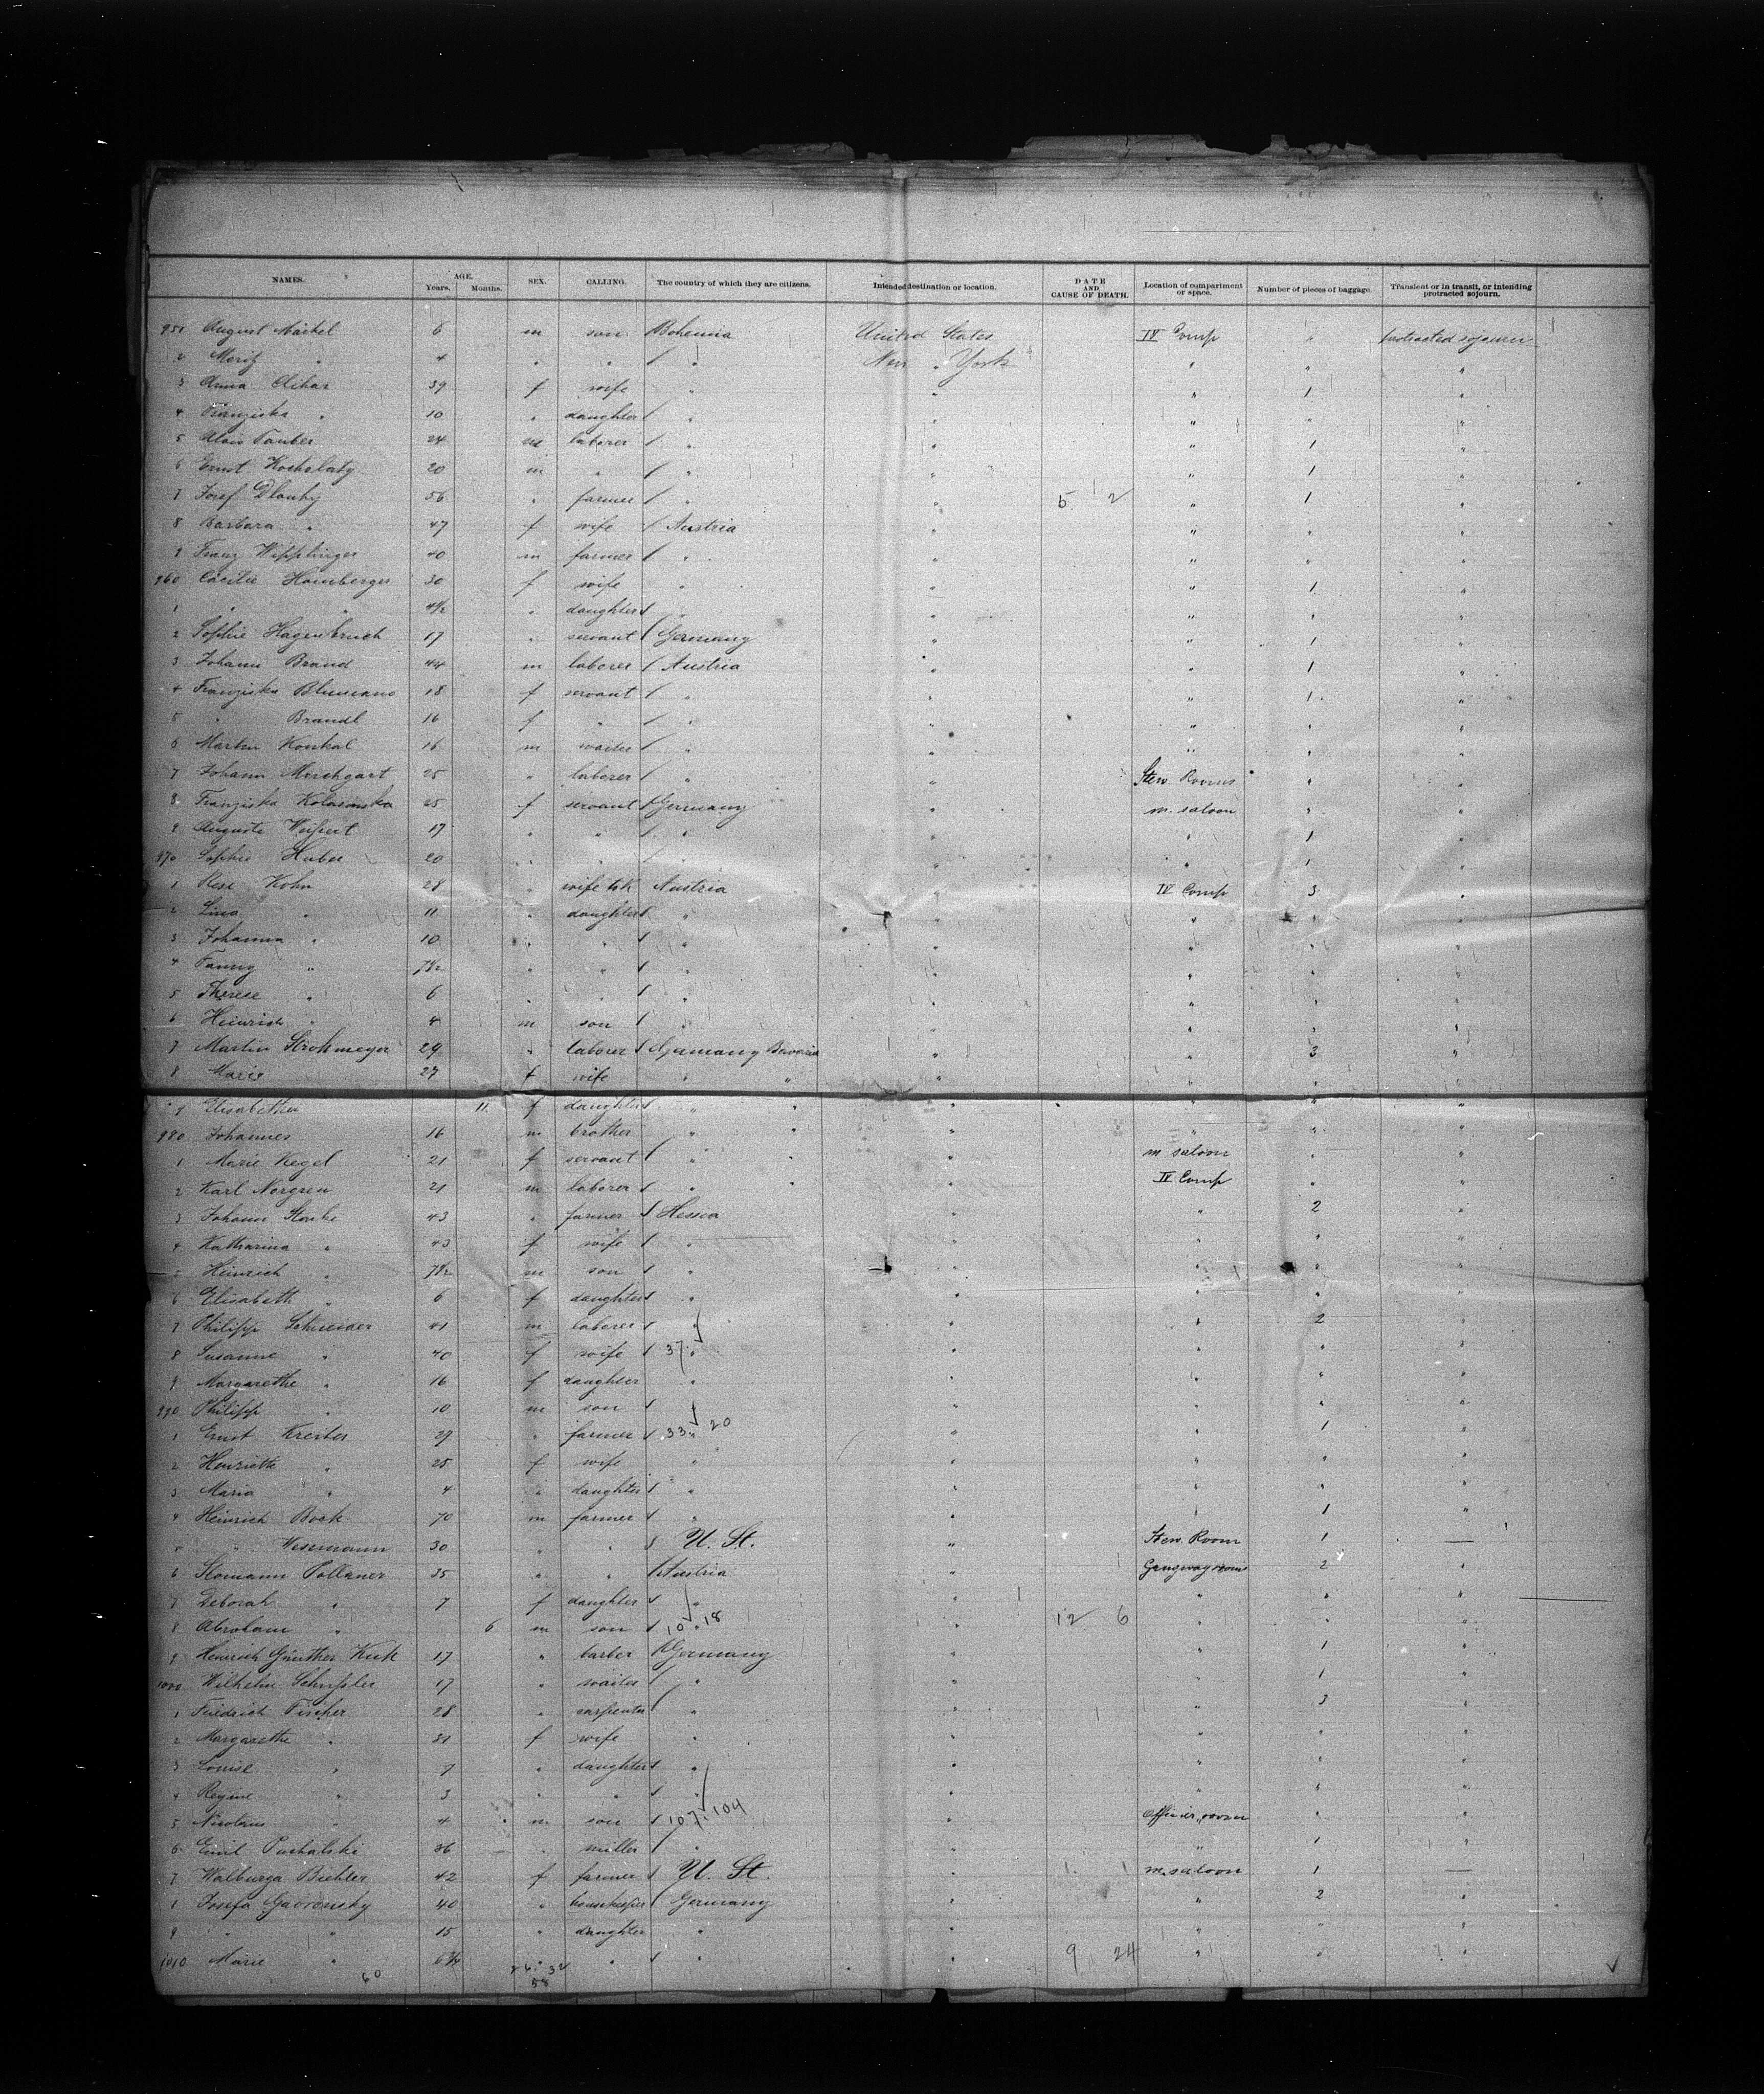 NAMES. AGE. Years. Months. SEX. CALLING. The country of which they are citizens. Intended destination or location. DATE AND CAUSE OF DEATH. Location of compartment or space. Number of pieces of baggage. Transient or in transit, or intending protracted sojourn.
951 August Mäckel 6 m son Bohemia United States IV Comp " protracted sojourn
2 Moritz " 4 " " " New York " " "
3 Anna 39 f wife " " " 1 "
4 Franziska " 10 " daughter " " " " "
5 Alois Tauber 24 m laborer " " " 1 "
6 Ernst Kochelaty 20 m " " " " 1 "
7 Josef Dlouhy 56 " farmer " " 5 2 " 1 "
8 Barbara " 47 f wife Austria " " " "
9 Franz Wipplinger 40 m farmer " " " " "
960 Cäcilie Hamberger 30 f wife " " " 1 "
1 " " 4½ " daughter " " " " "
2 Sophie Hagenbruch 17 " servant Germany " " 1 "
3 Johann Brand 44 m laborer Austria " " 1 "
4 Franziska Blumauer 18 f servant " " " 1 "
5 " Brandl 16 f " " " " " "
6 Martin Koukal 16 m waiter " " " " "
7 Johann Merchgart 25 " laborer " " Stew. Rooms " "
8 Franziska Kolasinska 25 f servant Germany " m. saloon " "
9 Auguste Weißert 17 " " " " " 1 "
970 Sophie Huber 20 " " " " " 1 "
1 Rese Kohn 28 " wife Austria " IV Comp 3 "
2 Lina " 11 " daughter " " " " "
3 Johanna " 10 " " " " " " "
4 Fanny " 7½ " " " " " " "
5 Therese " 6 " " " " " " "
6 Heinrich " 4 m son " " " " "
7 Martin Strohmeyer 29 " laborer Germany Bavaria " " 3 "
8 Marie 27 f wife " " " " " "
9 Elisabetha 11 f daughter " " " " " "
980 Johannes 16 m brother " " " " " "
1 Marie Kegel 21 f servant " " m saloon " "
2 Karl Norgren 21 m laborer " " " IV Comp " "
3 Johann Starke 43 " farmer Hessia " " 2 "
4 Katharina " 43 f wife " " " " "
5 Heinrich " 7½ m son " " " " "
6 Elisabeth " 6 f daughter " " " " "
7 Philipp Schneider 41 m laborer " " " 2 "
8 Susanne " 40 f wife 37 " " " " "
9 Margarethe " 16 f daughter " " " " "
990 Philipp " 10 m son " " " " "
1 Ernst Kreiter 29 " farmer 33 " 20 " " 1 "
2 Henriette " 25 f wife " " " " "
3 Maria " 4 " daughter " " " " "
4 Heinrich Bock 70 m farmer " " " 1 "
" " Wessmann 30 " " U. St. " Stew. Room 1 —
6 Pollaner 35 " " Austria " Gangway room 2 "
7 Deborah " 7 f daughter " " " " "
8 Abraham " 6 m son 10 " 18 " 12 6 " " "
9 Heinrich Günther Kuk 17 " barber Germany " " 1 "
1000 Wilhelm Schüssler 17 " waiter " " " 1 "
1 Friedrich Fischer 28 " carpenter " " " 3 "
2 Margarethe " 31 f wife " " " " "
3 Louise " 7 " daughter " " " " "
4 Regine " 3 " " " " " " "
5 Nicolaus " 4 m son 107 " 104 " Officier room " "
6 Emil Puchalski 36 " miller " " " 1 "
7 Walburga Biehler 42 f farmer U. St. " 1 1 m. saloon 1 —
Josefa Gavronsky 40 " housekeeper Germany " " 2 "
9 " " 15 " daughter " " " " "
1010 Marie " " " " " 9 24 " " "
60 26 32
58